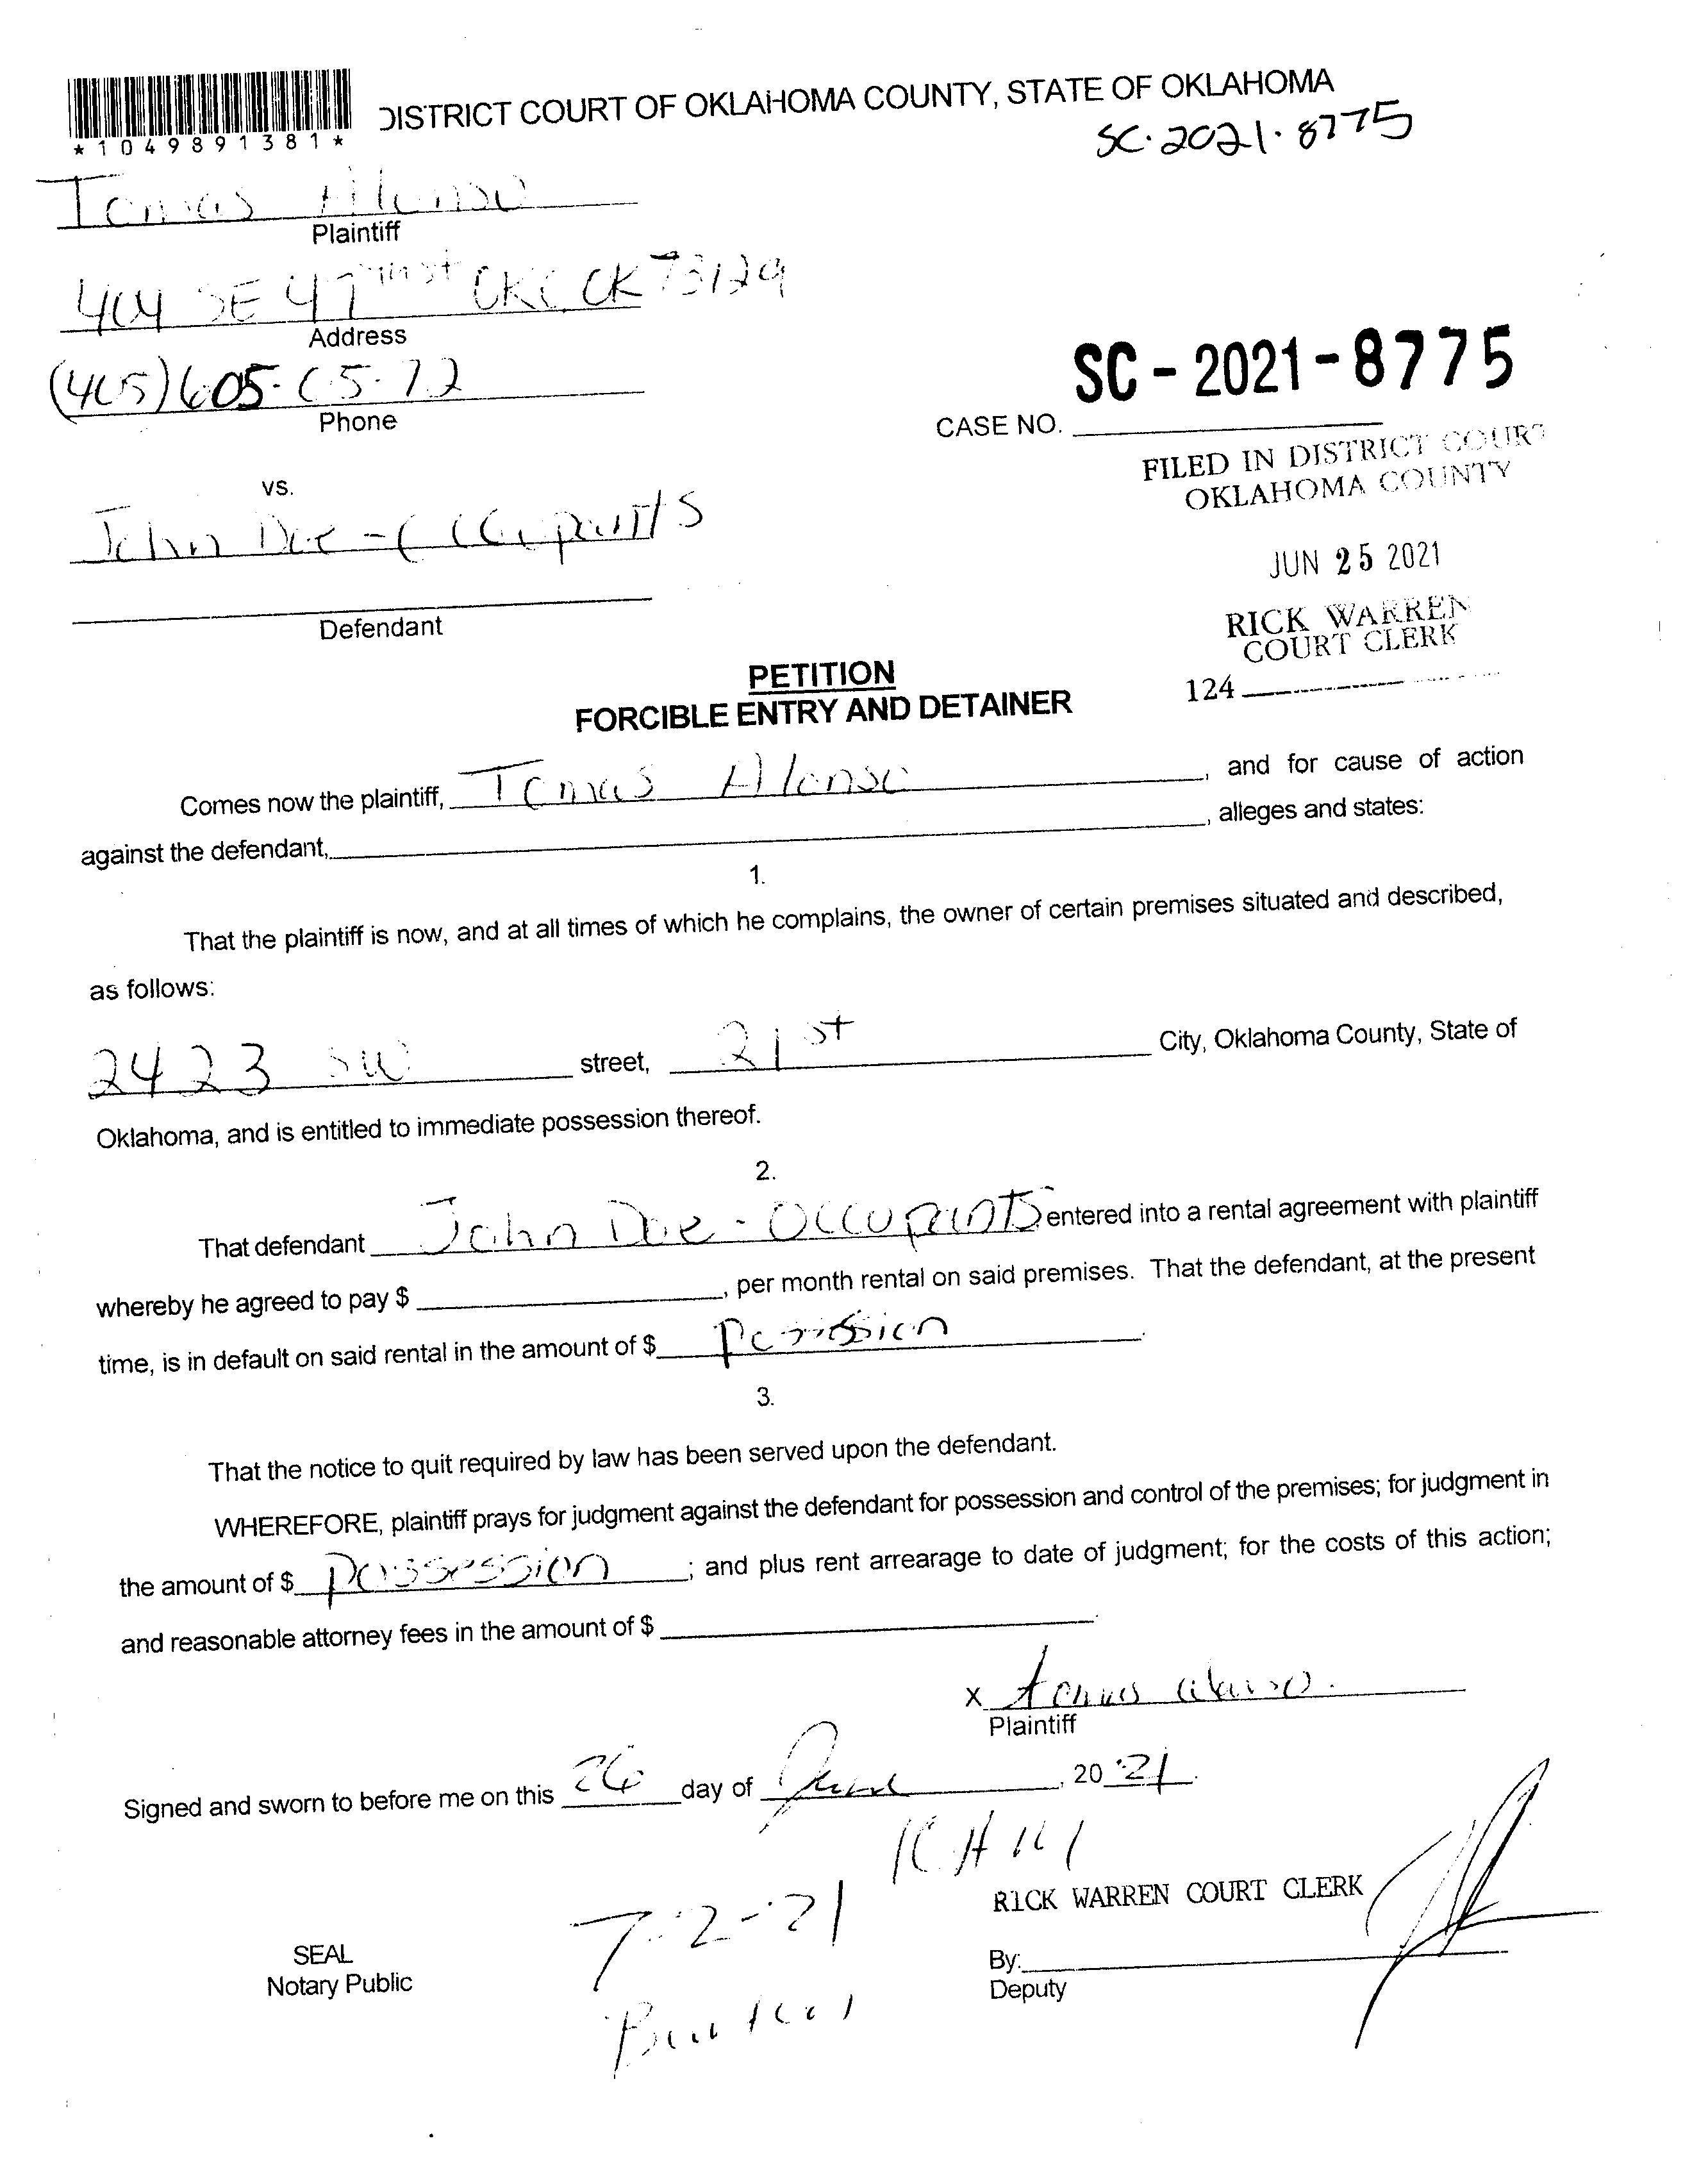 DISTRICT COURT OF OKLAHOMA COUNTY, STATE OF OKLAHOMA
*1049891381*
SC-2021-8775
Tomas Alonso
Plaintiff
404 SE 47 OKC OK 73129
Address
(405) 605-05-72
Phone
SC-2021-8775
CASE NO.
FILED IN DISTRICT COURT
OKLAHOMA COUNTY
vs.
John Doe - Occupants
JUN 25 2021
Defendant
RICK WARREN
COURT CLERK
124
PETITION
FORCIBLE ENTRY AND DETAINER
Comes now the plaintiff, Tomas Alonso, and for cause of action
against the defendant, , alleges and states:
1.
That the plaintiff is now, and at all times of which he complains, the owner of certain premises situated and described,
as follows:
2423 SW street, 21st City, Oklahoma County, State of
Oklahoma, and is entitled to immediate possession thereof.
2.
That defendant John Doe - Occupants entered into a rental agreement with plaintiff
whereby he agreed to pay $ , per month rental on said premises. That the defendant, at the present
time, is in default on said rental in the amount of $ .
3.
That the notice to quit required by law has been served upon the defendant.
WHEREFORE, plaintiff prays for judgment against the defendant for possession and control of the premises; for judgment in
the amount of $ possession ; and plus rent arrearage to date of judgment; for the costs of this action;
and reasonable attorney fees in the amount of $ .
x Tomas Alonso.
Plaintiff
Signed and sworn to before me on this day of June, 2021.
RICK WARREN COURT CLERK
7-2-21
SEAL
Notary Public
By:
Deputy